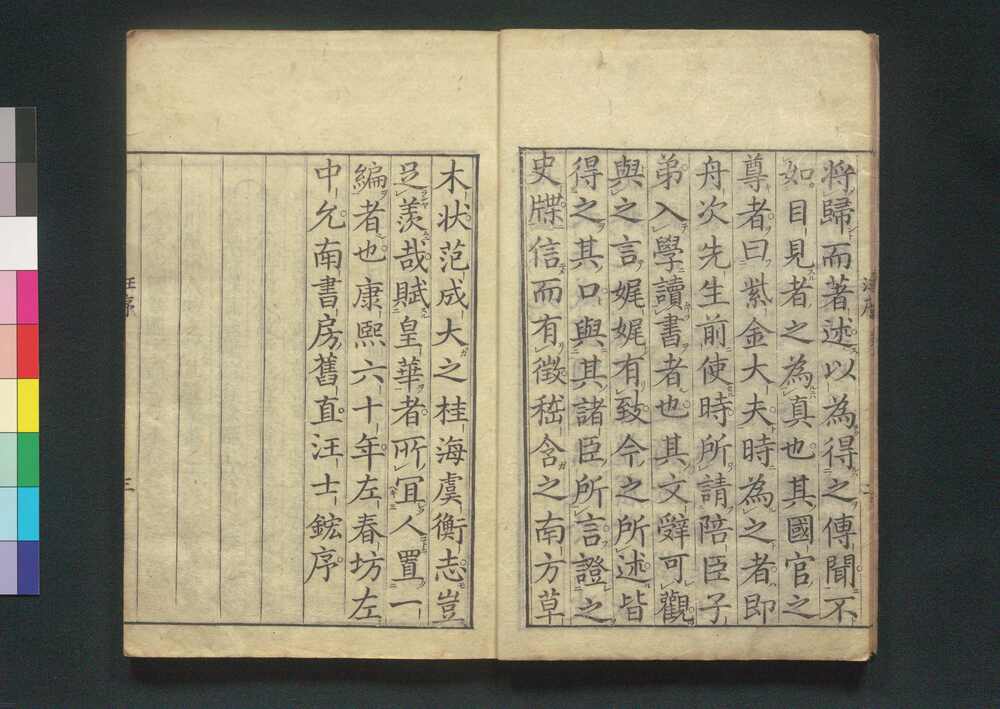 将歸而著述以為得之傳聞不
如目見者之為真也其國官之
尊者曰紫金大夫時為之者即
舟次先生前使時所請陪臣子
弟入學讀書者也其文辭可觀
與之言娓娓有致今之所述皆
得之其口與其諸臣所言證之
史牒信而有徵嵇含之南方草
木状范成大之桂海虞衡志豈
足羨哉賦皇華者所宜人置一
編者也康熙六十年左春坊左
中允南書房舊直汪士鋐序
汪序
三